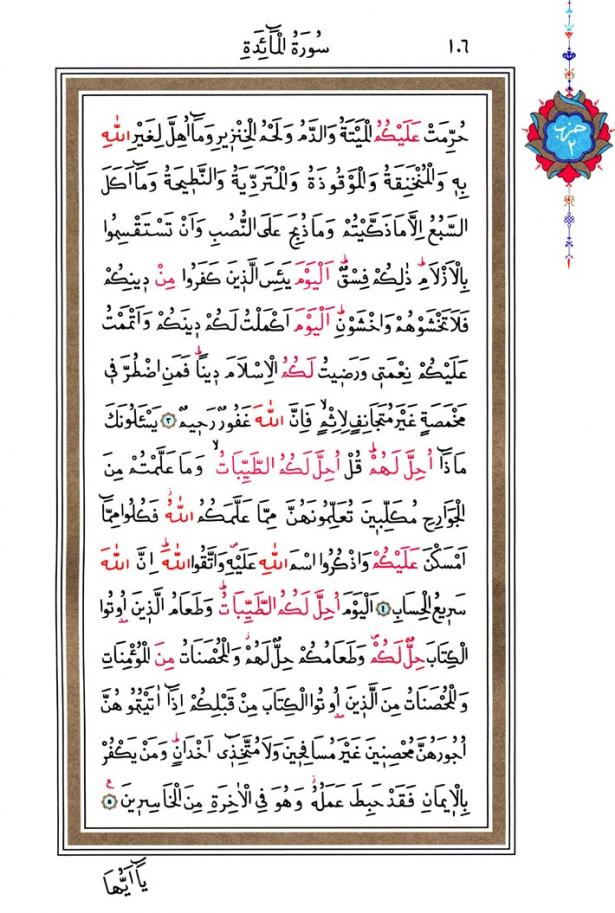 ١٠٦ سُورَةُ الْمَٓائِدَةِ
حزب
٢
حُرِّمَتْ عَلَيْكُمُ الْمَيْتَةُ وَالدَّمُ وَلَحْمُ الْخِنْز۪يرِ وَمَٓا اُهِلَّ لِغَيْرِ اللّٰهِ
بِه۪ وَالْمُنْخَنِقَةُ وَالْمَوْقُوذَةُ وَالْمُتَرَدِّيَةُ وَالنَّط۪يحَةُ وَمَٓا اَكَلَ
السَّبُعُ اِلَّا مَا ذَكَّيْتُمْ وَمَا ذُبِحَ عَلَى النُّصُبِ وَاَنْ تَسْتَقْسِمُوا
بِالْاَزْلَامِۜ ذٰلِكُمْ فِسْقٌۜ اَلْيَوْمَ يَئِسَ الَّذ۪ينَ كَفَرُوا مِنْ د۪ينِكُمْ
فَلَا تَخْشَوْهُمْ وَاخْشَوْنِۜ اَلْيَوْمَ اَكْمَلْتُ لَكُمْ د۪ينَكُمْ وَاَتْمَمْتُ
عَلَيْكُمْ نِعْمَت۪ي وَرَض۪يتُ لَكُمُ الْاِسْلَامَ د۪يناًۜ فَمَنِ اضْطُرَّ ف۪ي
مَخْمَصَةٍ غَيْرَ مُتَجَانِفٍ لِاِثْمٍۙ فَاِنَّ اللّٰهَ غَفُورٌ رَح۪يمٌ ٣ يَسْـَٔلُونَكَ
مَاذَٓا اُحِلَّ لَهُمْۜ قُلْ اُحِلَّ لَكُمُ الطَّيِّبَاتُۙ وَمَا عَلَّمْتُمْ مِنَ
الْجَوَارِحِ مُكَلِّب۪ينَ تُعَلِّمُونَهُنَّ مِمَّا عَلَّمَكُمُ اللّٰهُۘ فَكُلُوا مِمَّٓا
اَمْسَكْنَ عَلَيْكُمْ وَاذْكُرُوا اسْمَ اللّٰهِ عَلَيْهِۖ وَاتَّقُوا اللّٰهَۜ اِنَّ اللّٰهَ
سَر۪يعُ الْحِسَابِ ٤ اَلْيَوْمَ اُحِلَّ لَكُمُ الطَّيِّبَاتُۜ وَطَعَامُ الَّذ۪ينَ اُو۫تُوا
الْكِتَابَ حِلٌّ لَكُمْۖ وَطَعَامُكُمْ حِلٌّ لَهُمْۘ وَالْمُحْصَنَاتُ مِنَ الْمُؤْمِنَاتِ
وَالْمُحْصَنَاتُ مِنَ الَّذ۪ينَ اُو۫تُوا الْكِتَابَ مِنْ قَبْلِكُمْ اِذَٓا اٰتَيْتُمُوهُنَّ
اُجُورَهُنَّ مُحْصِن۪ينَ غَيْرَ مُسَافِح۪ينَ وَلَا مُتَّخِذ۪ٓي اَخْدَانٍۜ وَمَنْ يَكْفُرْ
بِالْا۪يمَانِ فَقَدْ حَبِطَ عَمَلُهُۘ وَهُوَ فِي الْاٰخِرَةِ مِنَ الْخَاسِر۪ينَ ٥
يَٓا اَيُّهَا